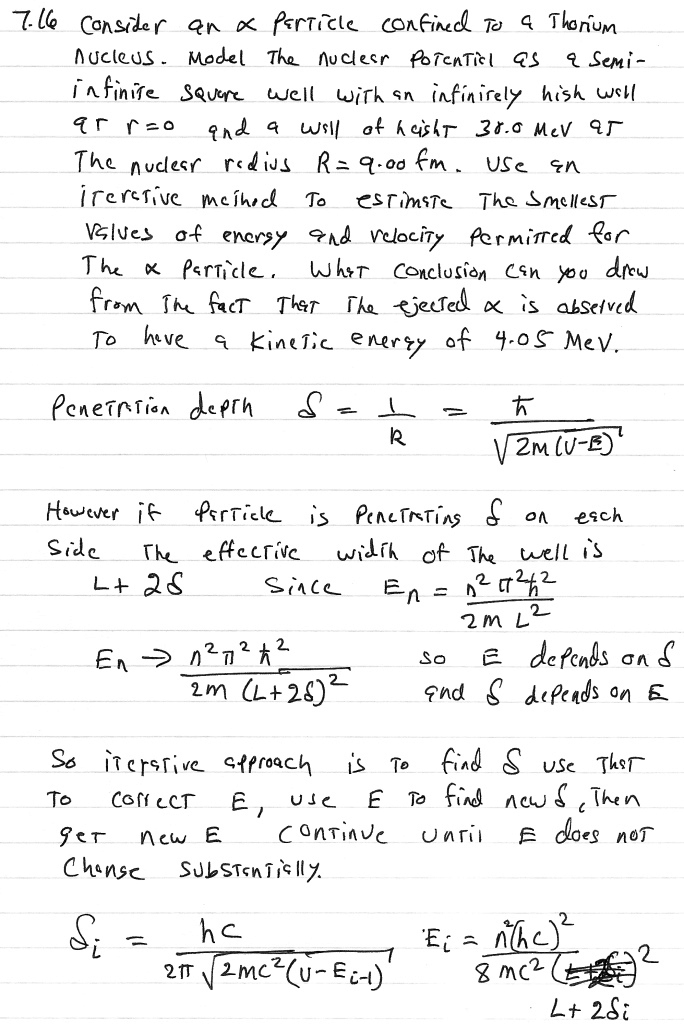 7.16 Consider an α particle confined to a Thorium
nucleus. Model the nuclear potential as a semi-
infinite square well with an infinitely high wall
at r=0 and a wall of height 38.0 MeV at
the nuclear radius R = 9.00 fm. Use an
iterative method to estimate the smallest
values of energy and velocity permitted for
the α particle. What conclusion can you draw
from the fact that the ejected α is observed
to have a kinetic energy of 4.05 MeV.
Penetration depth δ = 1/k = ħ/√(2m(U-E))
However if particle is penetrating δ on each
side the effective width of the well is
L + 2δ since En = n²π²ħ²/2mL²
En → n²π²ħ²/2m(L+2δ)² so E depends on δ
and δ depends on E
So iterative approach is to find δ use that
to correct E, use E to find new δ, then
get new E continue until E does not
change substantially.
δi = hc/2π√(2mc²(U-Ei-1)) Ei = n²(hc)²/8mc²( )²
L + 2δi